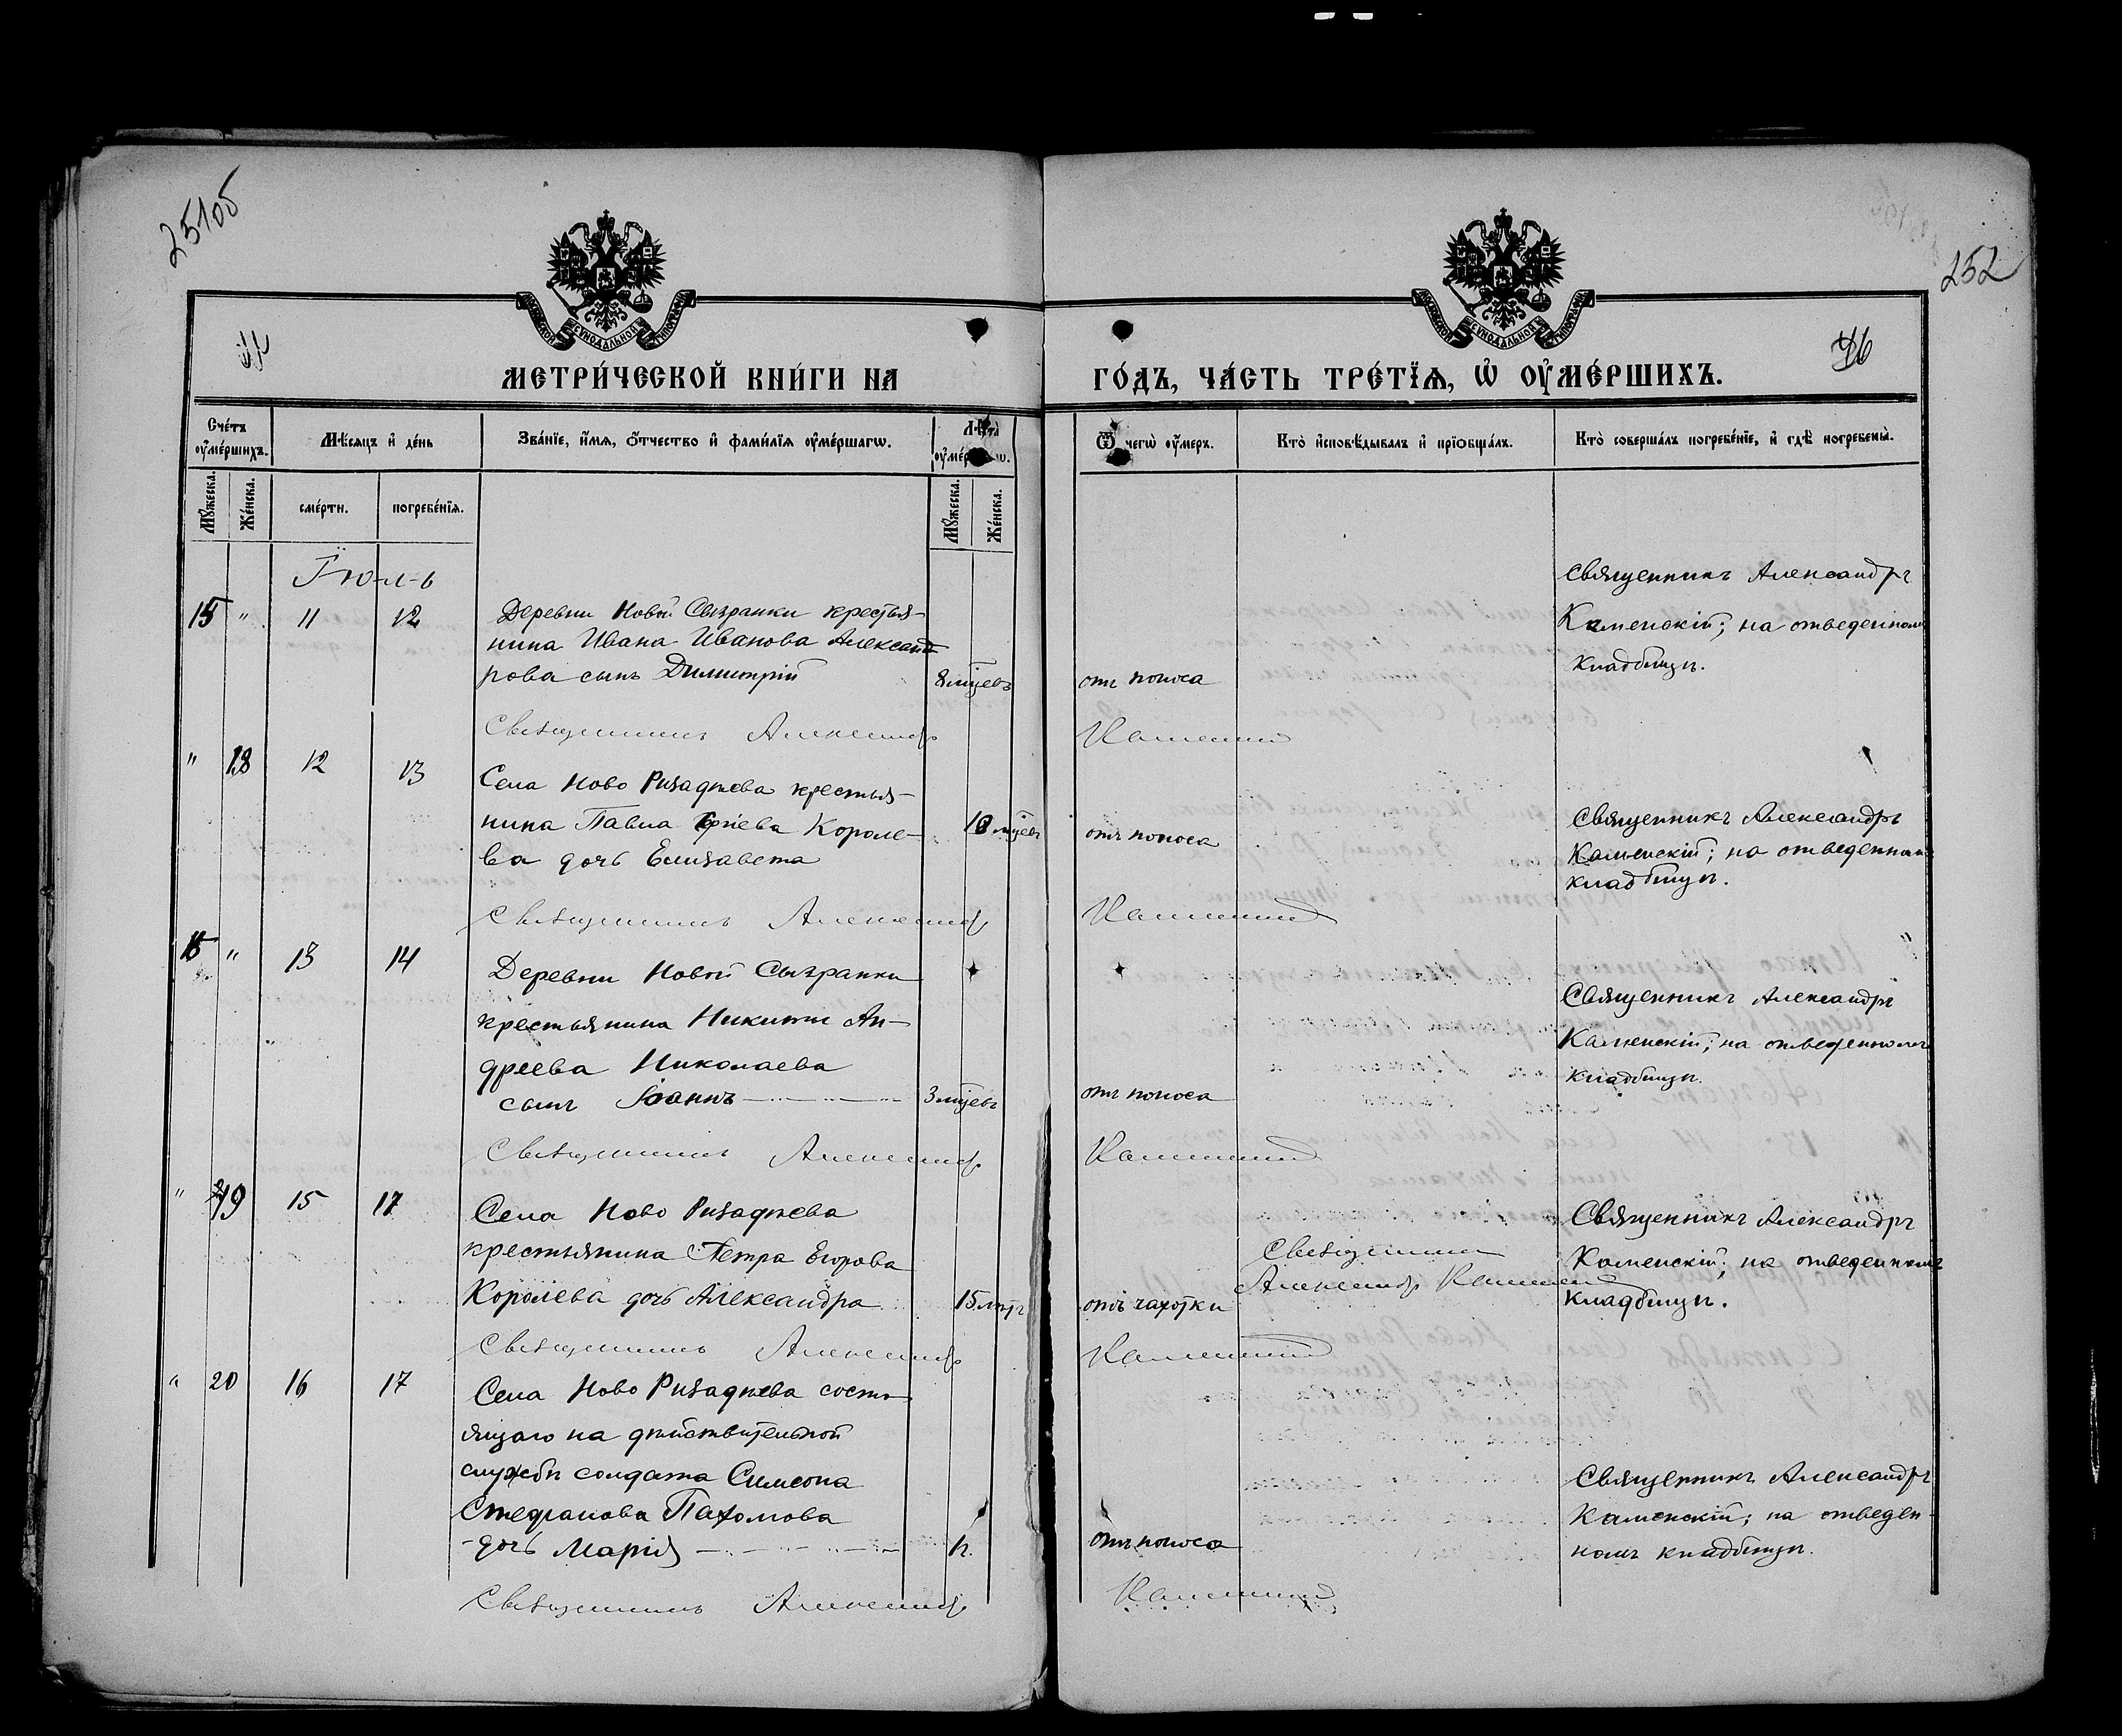 251об
252
96
МЕТРИ́ЧЕСКОЙ КНИ́ГИ НА ГО́ДЪ, ЧА́СТЬ ТРЕ́ТЇѦ, Ѡ҆ ОУ҆МЕ́РШИХЪ.
Сче́тъ оу҆ме́ршихъ.
Мѣ́сѧцъ и҆ де́нь
Зва́нїе, и҆́мѧ, ѻ҆́тчество и҆ фамı́лїѧ оу҆ме́ршагѡ.
Лѣ́та
Ѿ чегѡ̀ оу҆́меръ.
Кто̀ и҆сповѣ́дывалъ и҆ прїѡбща́лъ.
Кто̀ соверша́лъ погребе́нїе, и҆ гдѣ̀ погребены̀.
Мꙋ́жеска.
Же́нска.
сме́рти.
погребе́нїѧ.
Мꙋ́жеска.
Же́нска.
Іюль
15 " 11 12
Деревни Новой Сызранки крестья-
нина Ивана Иванова Александ-
рова сынъ Димитрій
8 мѣцевъ
отъ поноса
Священникъ Александръ
Каменскій; на отведенномъ
кладбищѣ.
Священникъ Александръ Каменскій
" 18 12 13
Села Ново Ризадѣева крестья-
нина Павла Короле-
ва дочь Елизавета
10 мѣцевъ
отъ поноса
Священникъ Александръ
Каменскій; на отведенномъ
кладбищѣ.
Священникъ Александръ Каменскій
" 13 14
Деревни Новой Сызранки
крестьянина Никиты Ан-
дреева Николаева
сынъ Іоаннъ
3 мѣцевъ
отъ поноса
Священникъ Александръ
Каменскій; на отведенномъ
кладбищѣ.
Священникъ Александръ Каменскій
" 19 15 17
Села Ново Ризадѣева
крестьянина Петра Егорова
Королева дочь Александра
15 лѣтъ
отъ чахотки
Священникъ
Александръ Каменскій
Священникъ Александръ
Каменскій; на отведенномъ
кладбищѣ.
Священникъ Александръ Каменскій
" 20 16 17
Села Ново Ризадѣева состо-
ящаго на дѣйствительной
службѣ солдата Симеона
Стефанова Пахомова
дочь Марія
отъ поноса
Священникъ Александръ
Каменскій; на отведен-
номъ кладбищѣ.
Священникъ Александръ Каменскій